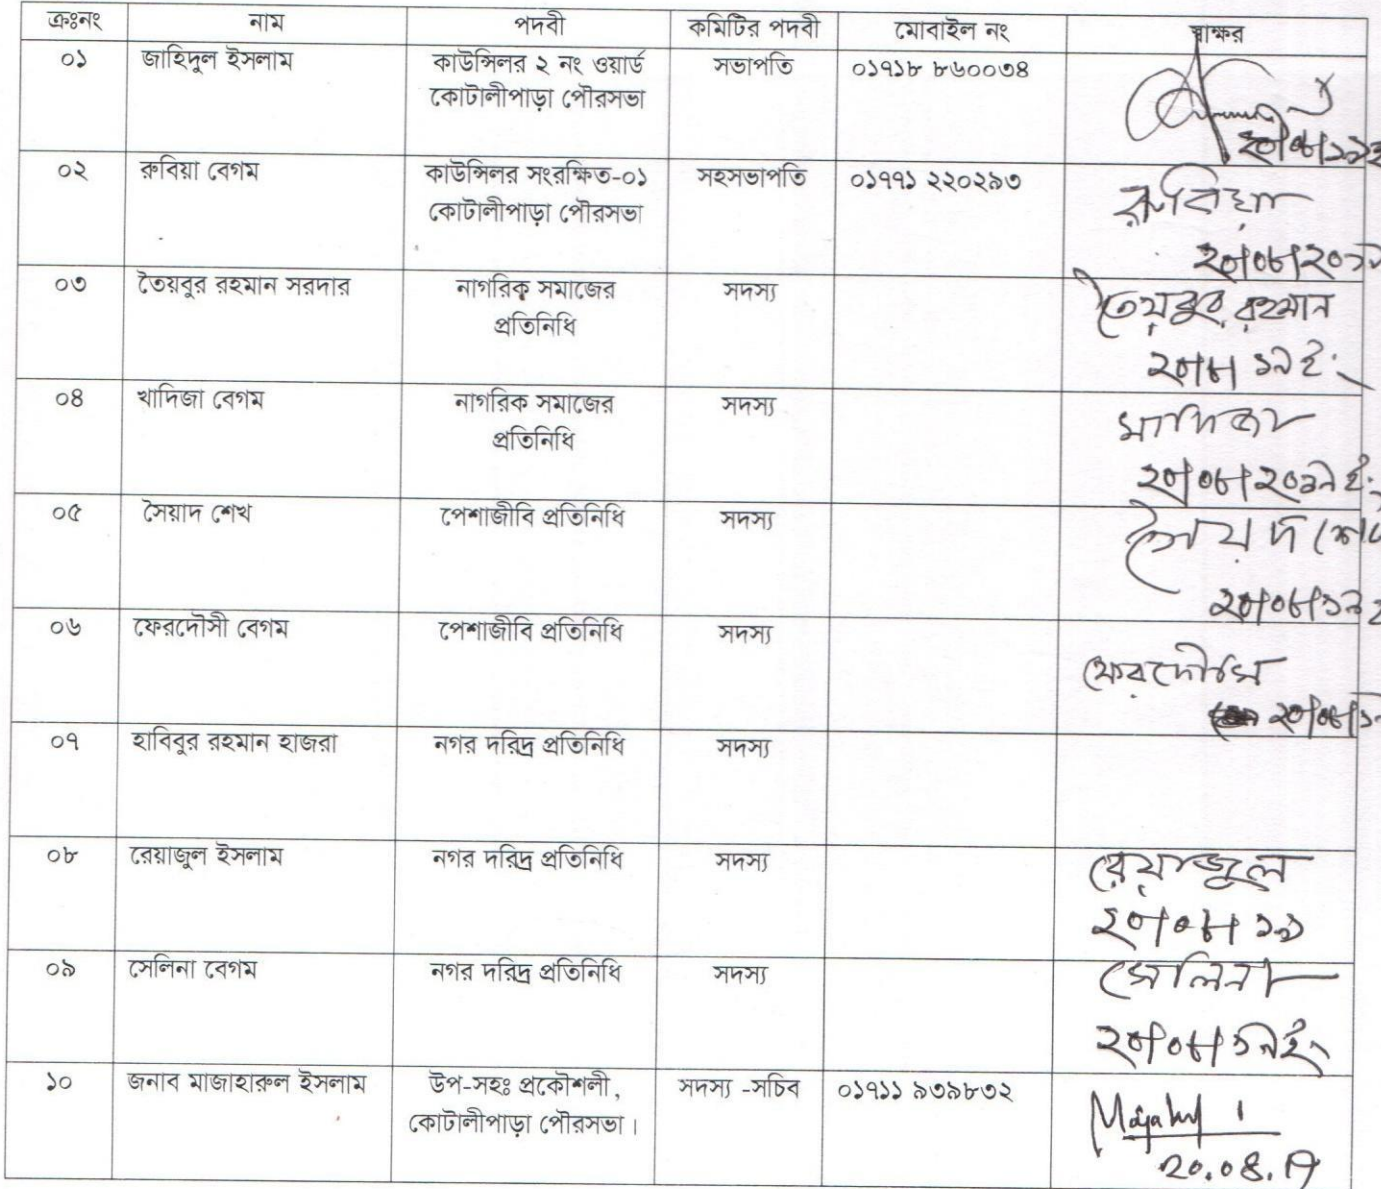 ক্রঃনং নাম পদবী কমিটির পদবী মোবাইল নং স্বাক্ষর
০১ জাহিদুল ইসলাম কাউন্সিলর ২ নং ওয়ার্ড সভাপতি ০১৭১৮ ৮৬০০৩৪
কোটালীপাড়া পৌরসভা
০২ রুবিয়া বেগম কাউন্সিলর সংরক্ষিত-০১ সহসভাপতি ০১৭৭১ ২২০২৯৩ রুবিয়া
কোটালীপাড়া পৌরসভা
২০/০৮/২০১৯
০৩ তৈয়বুর রহমান সরদার নাগরিক সমাজের সদস্য তৈয়বুর রহমান
প্রতিনিধি
২০/৮/১৯ ইং
০৪ খাদিজা বেগম নাগরিক সমাজের সদস্য খাদিজা
প্রতিনিধি
২০/০৮/২০১৯ ইং
০৫ সৈয়াদ শেখ পেশাজীবি প্রতিনিধি সদস্য সৈয়দ শেখ
২০/০৮/১৯
০৬ ফেরদৌসী বেগম পেশাজীবি প্রতিনিধি সদস্য ফেরদৌসি
২০/০৮/১৯
০৭ হাবিবুর রহমান হাজরা নগর দরিদ্র প্রতিনিধি সদস্য
০৮ রেয়াজুল ইসলাম নগর দরিদ্র প্রতিনিধি সদস্য রেয়াজুল
২০/০৮/১৯
০৯ সেলিনা বেগম নগর দরিদ্র প্রতিনিধি সদস্য সেলিনা
২০/০৮/১৯ইং
১০ জনাব মাজাহারুল ইসলাম উপ-সহঃ প্রকৌশলী, সদস্য -সচিব ০১৭১১ ৯৩৯৮৩২
কোটালীপাড়া পৌরসভা।
20.08.19